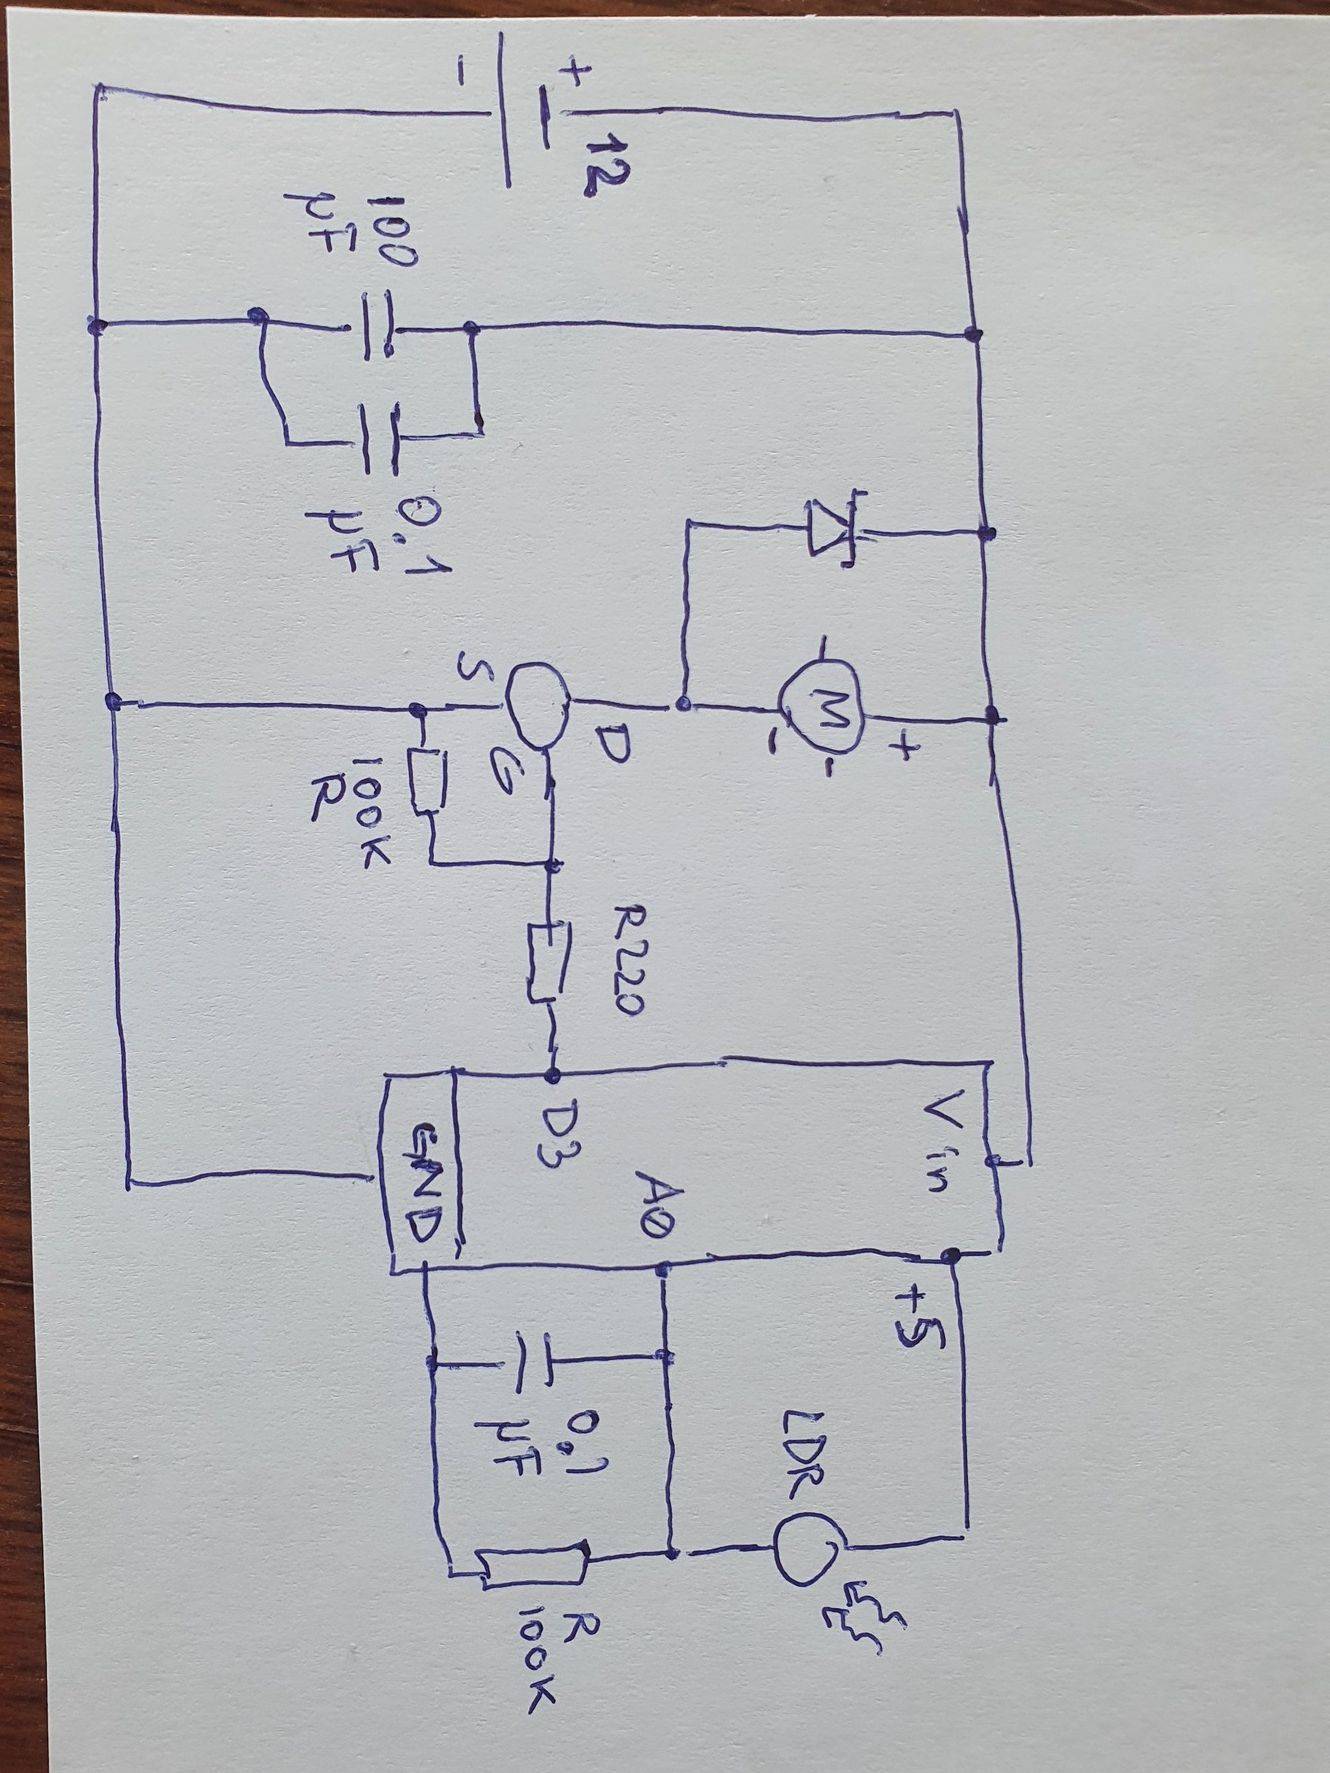 -
+
12
100
µF
0.1
µF
M
+
-
S
D
G
100K
R
R220
Vin
D3
A0
GND
+5
LDR
0.1
µF
R
100K